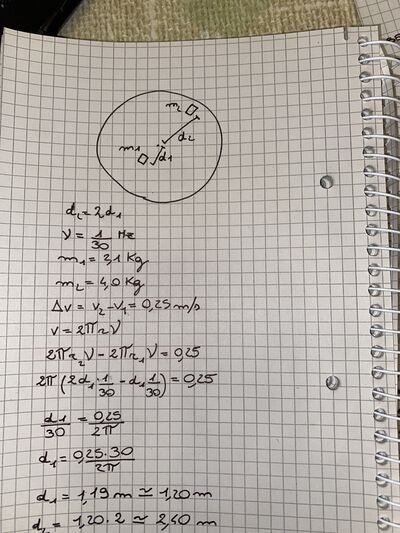 m₂
d₂
m₁
d₁
d₂ = 2d₁
ν = 1/30 Hz
m₁ = 3,1 Kg
m₂ = 4,0 Kg
Δv = v₂ - v₁ = 0,25 m/s
v = 2πrν
2πr₂ν - 2πr₁ν = 0,25
2π(2d₁·1/30 - d₁ 1/30) = 0,25
d1/30 = 0,25/2π
d₁ = 0,25·30/2π
d₁ = 1,19 m ≃ 1,20 m
d₂ = 1,20·2 ≃ 2,40 m